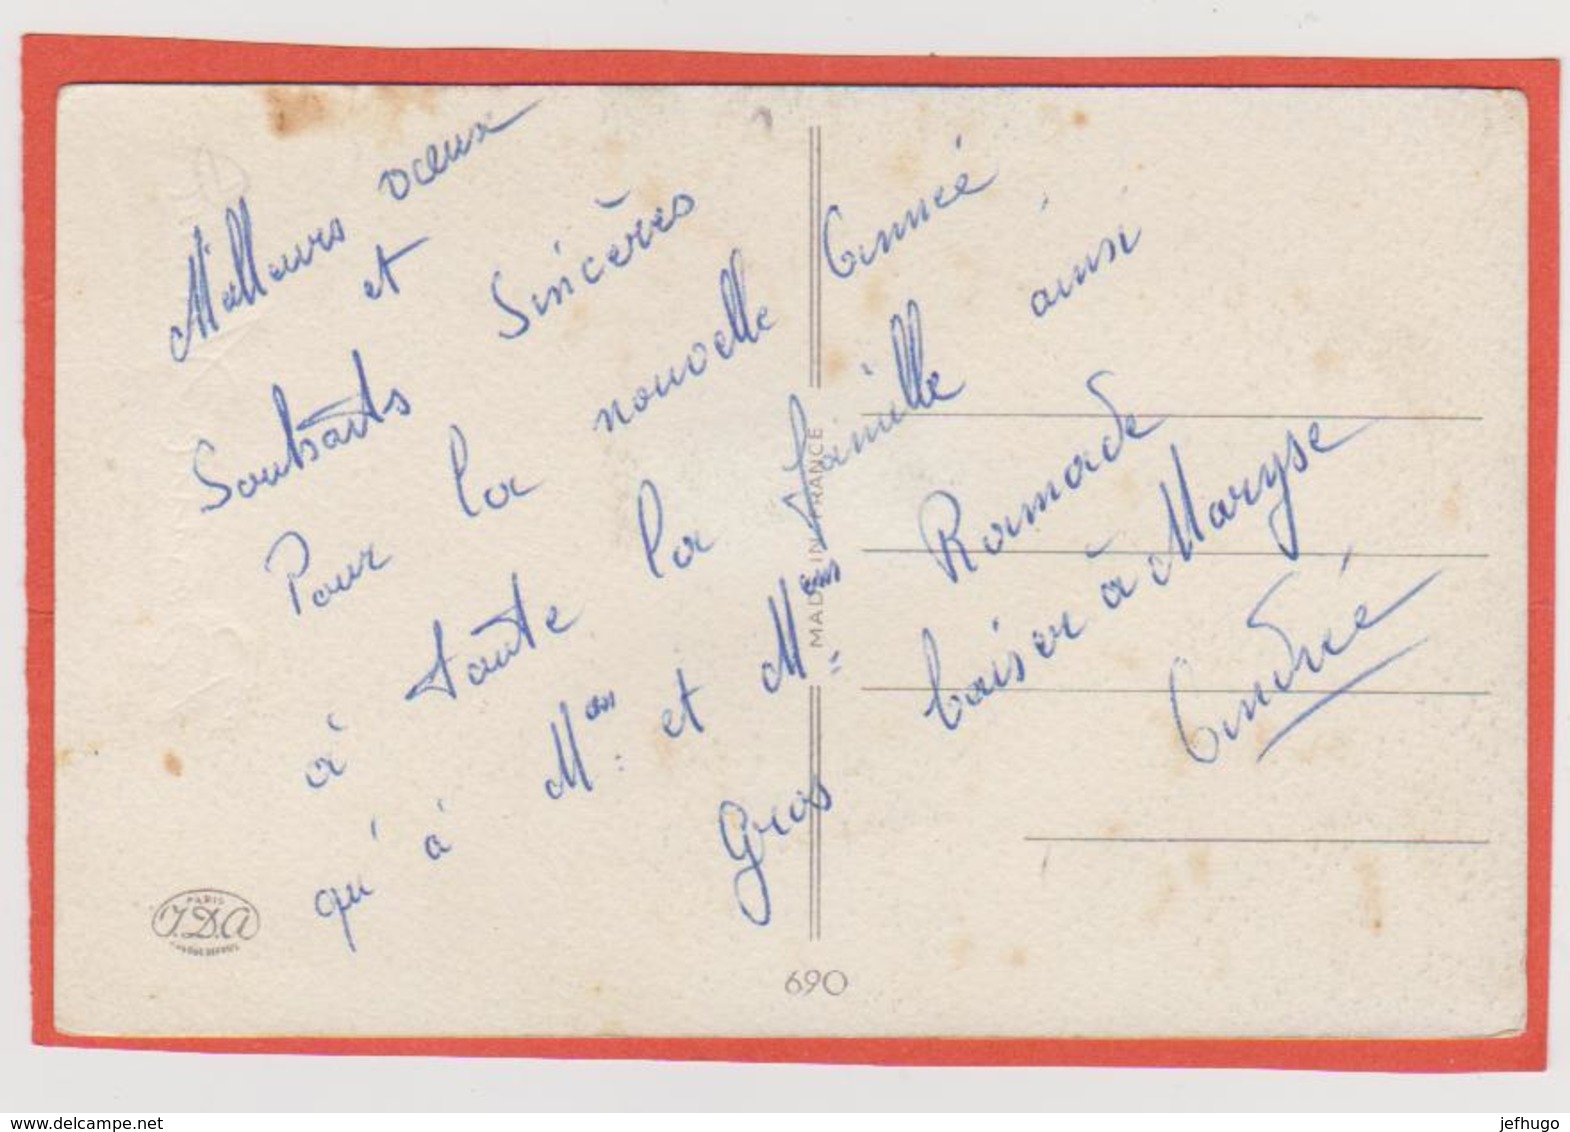 Meilleurs vœux
et
Souhaits Sincères
Pour la nouvelle Année
à toute la famille ainsi
qu'à à Mon. et Mme Ramade
Gros baiser à Maryse
André
MADE IN FRANCE
PARIS
J.D.A
690
www.delcampe.net
jefhugo